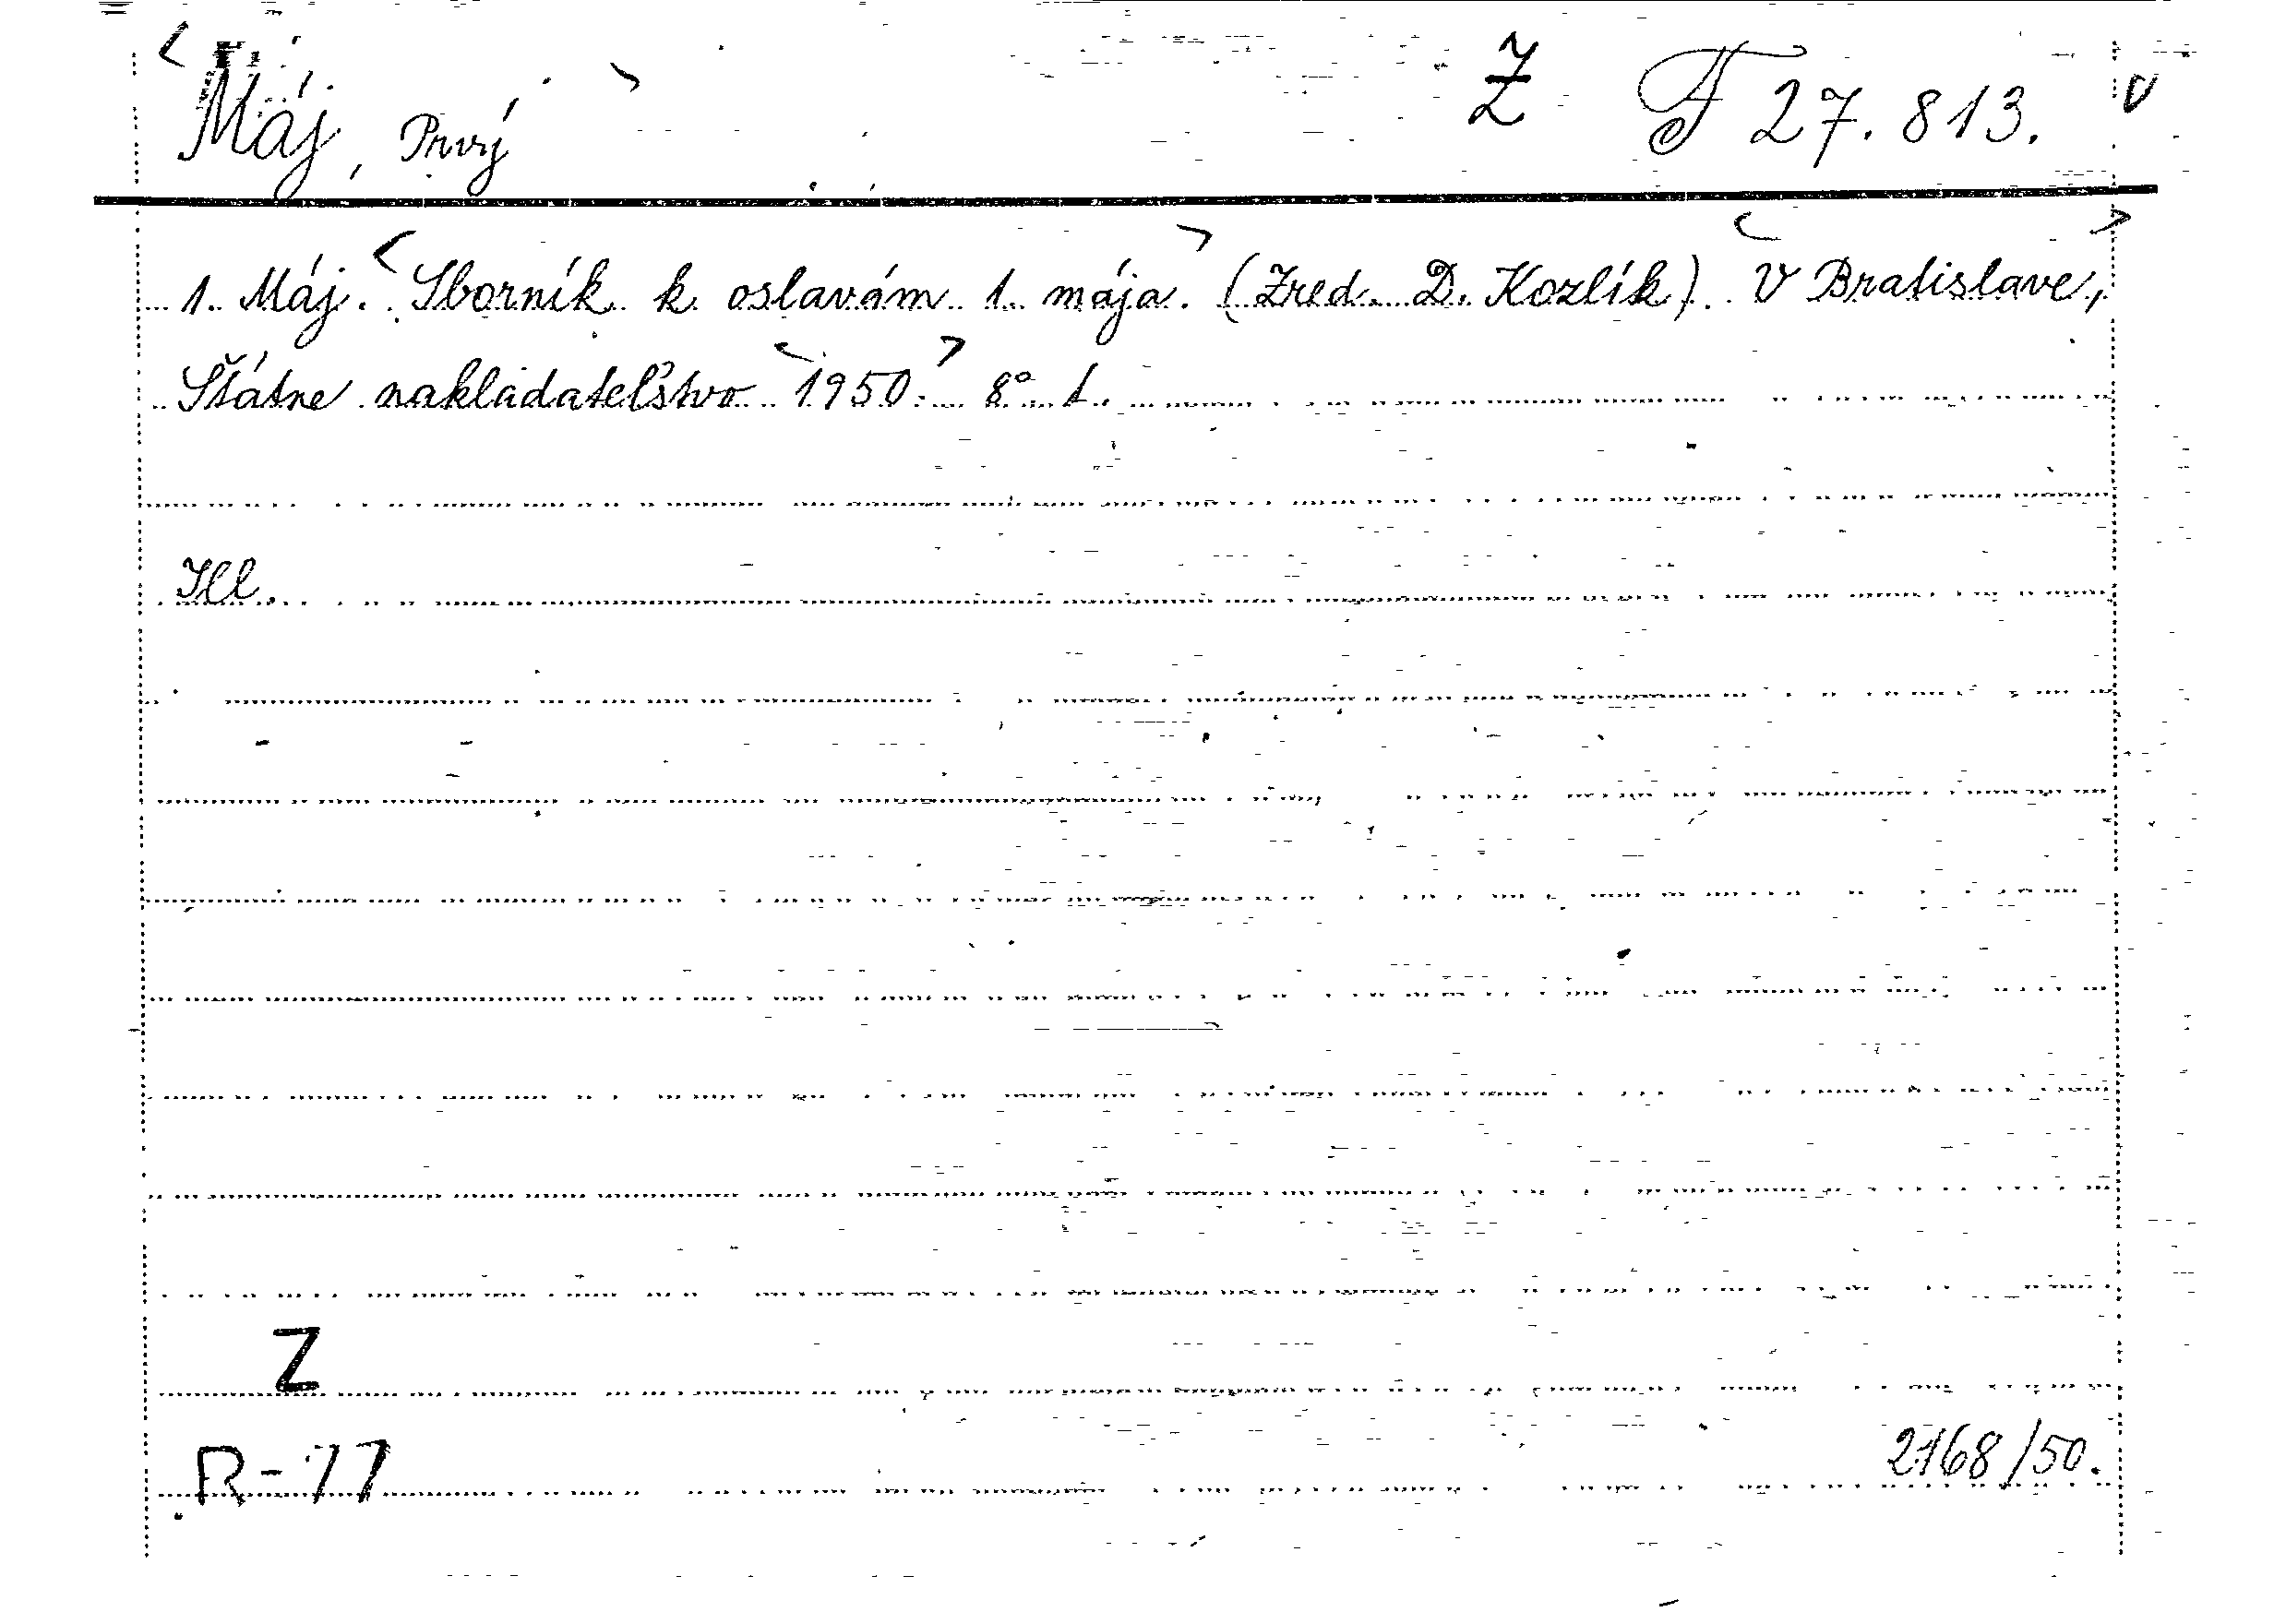 <Máj, Prvý> Ž F 27.813. v
1. Máj. <Sborník k oslavám 1. mája.> (Zred. D. Kozlík). <V Bratislave,>
Štátne nakladateľstvo <1950.> 8° 1.
Ill.
Z
R-77
2168/50.